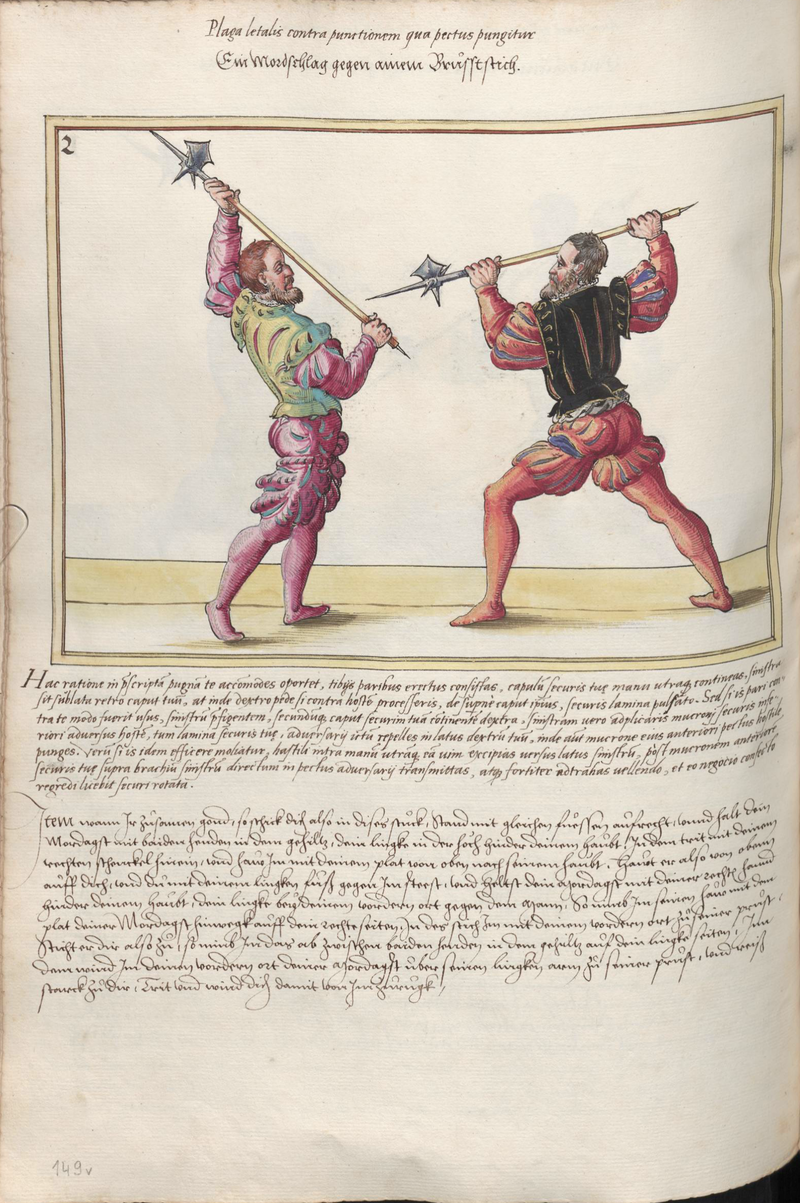 Plaga letalis contra punctionem qua pectus pungitur
Ein Mordschlag gegen ainem Bruststich.
2
Hac ratione in pscripta pugna te accomodes oportet, tibijs paribus erectus consistas, capulu securis tuę manu utraq contineas, sinistra
sit sublata retro caput tuu, at inde dextro pede si contra hoste processeris, de supne caput ipius, securis lamina pulsato. Sed si is pari con,,
tra te modo fuerit usus, sinistru pfigentem, secunduq caput securim tua cotinente dextra, sinistram vero adplicaris mucroni securis ante,,
riori adversus hoste, tum lamina securis tuę, adversarij ictu repelles in latus dextru tuu, inde aut mucrone eius anteriori pectus hostile
punges. Veru si is idem efficere moliatur, hastili intra manu utraq ea vim excipias versus latus sinistru, post mucronem anteriore
securis tuę supra brachiu sinistru directum in pectus adversarij transmittas, atq fortiter adtrahas vellendo, et eo negocio confecto
regredi licebit securi rotata.
Item wann Ir zusamen gond, so schick dich also in dises stuck, Stand mit gleichen fuessen aufrecht, unnd halt dein
Mordagst mit baiden henden in dem gehiltz, dein lingke in der hoch hinder deinem haubt, In dem trit mit deinem
rechten schenckel hinein, und haw Im mit deinem plat von oben nach seinem haubt. Hawt er also von oben
auff dich, und du mit deinem lingken fuß gegen Im steest, und heltst dein Mordagst mit deiner rechte hannd
hinder deinem haubt, dein lingke bey deinem vordern ort gegen dem Mann, So nimb Im seinen haw mit dem
plat deiner Mordagst hinwegk auff dein rechte seiten, In des stich Im mit deinem vordern ort zu seiner prust,
Sticht er dir also zu, so nimb Im das ab zwischen baiden henden in dem gehiltz auf dein lingke seiten, In
dem wind Im deinen vordern ort deiner Mordagst über seinen lingken arm zu seiner prust, und reiß
starck zu dir, Trit und wind dich damit von Im zurugk,
149v